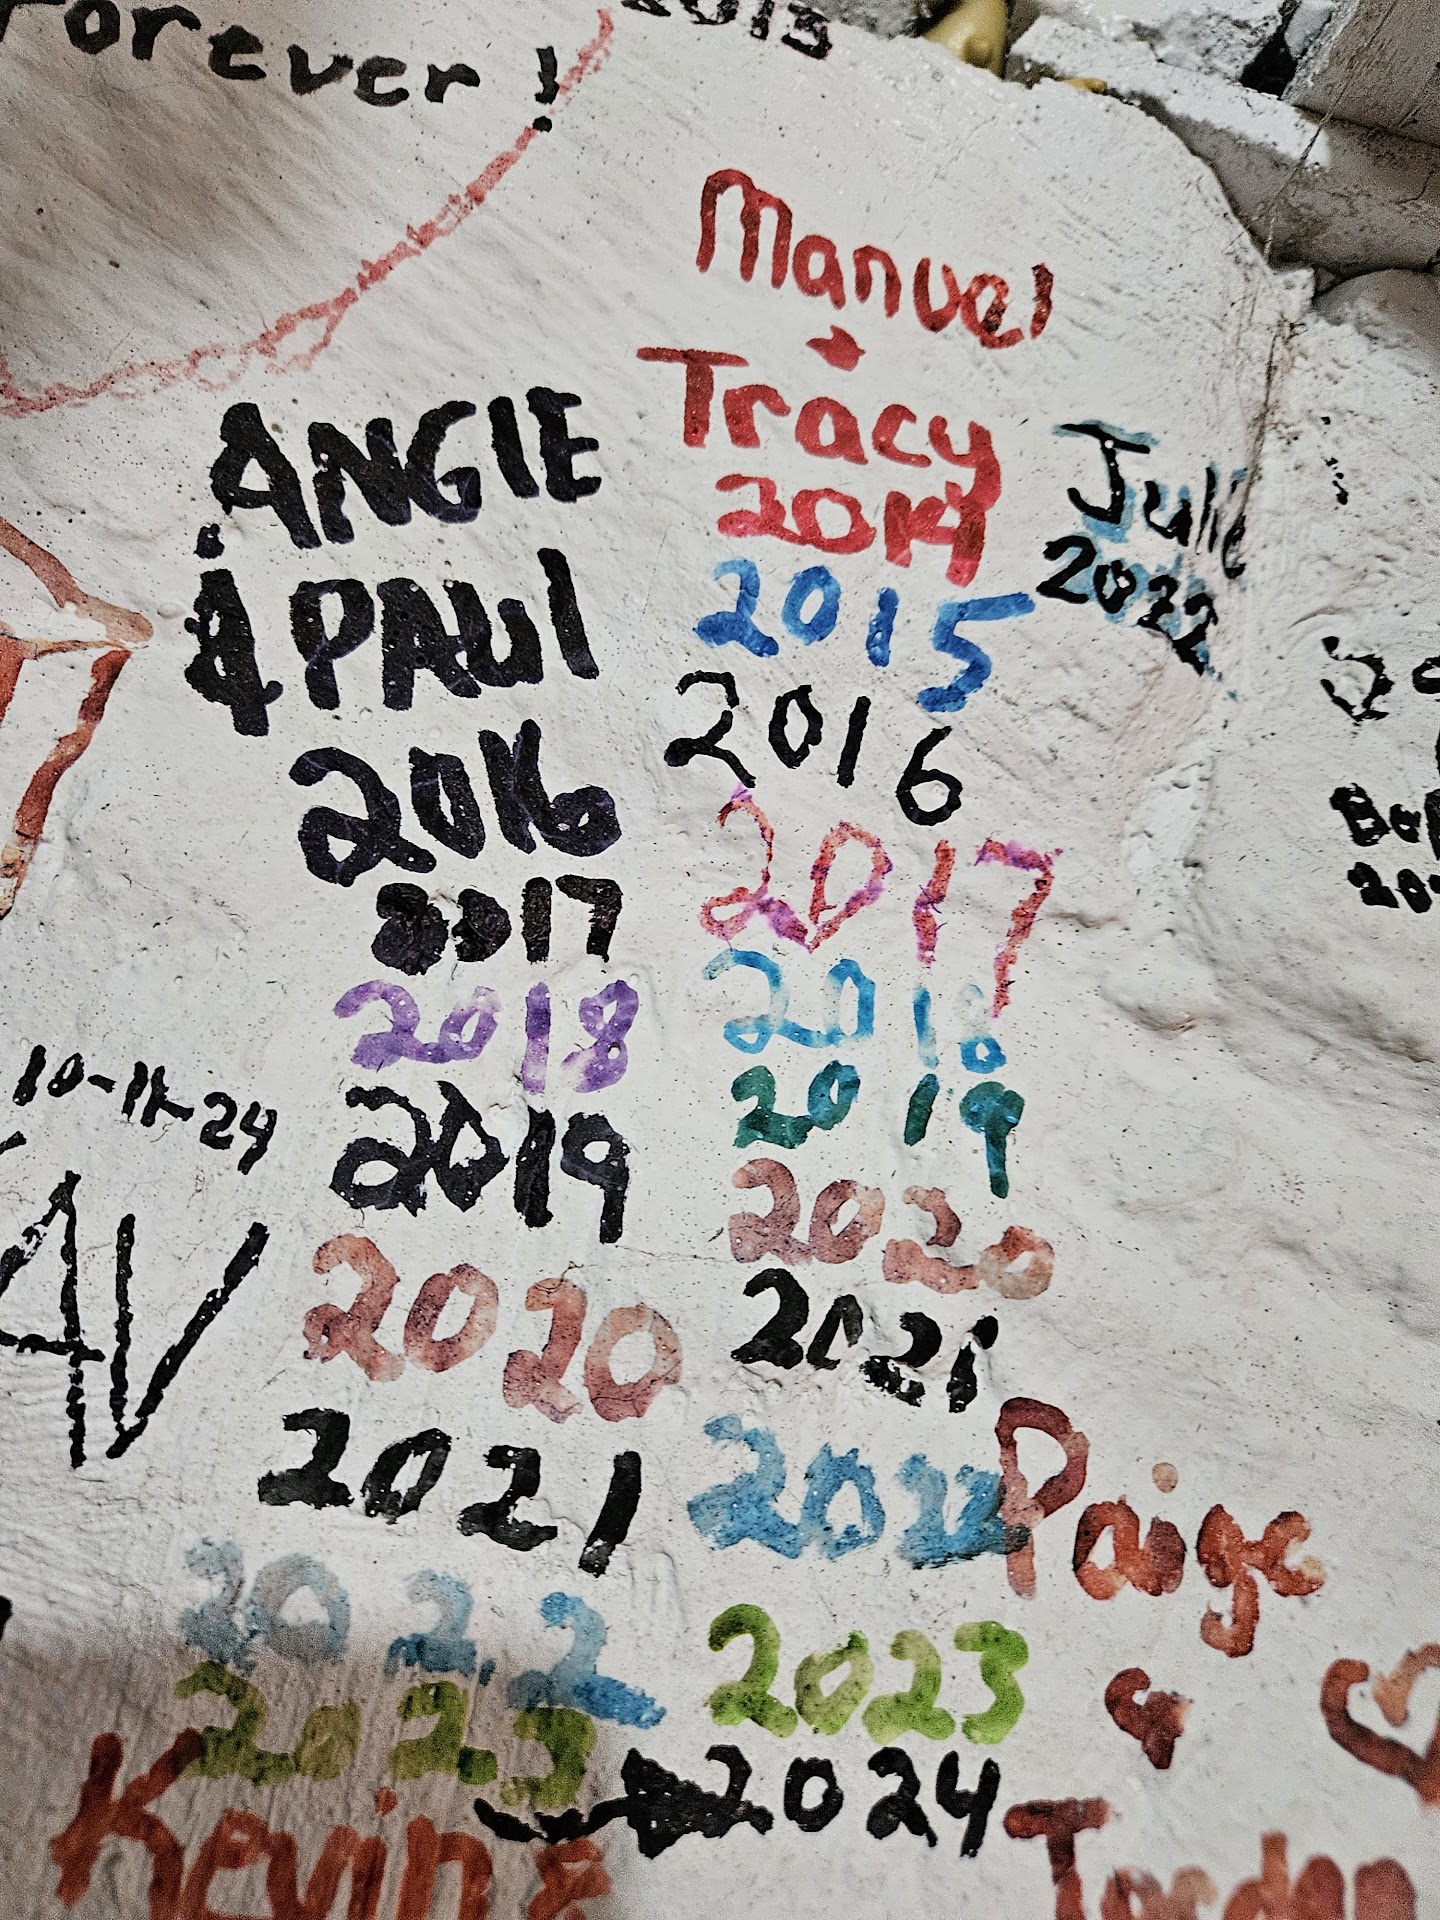 Forever!
2013
Manuel
+
Tracy
2014
2015
2016
2017
2018
2019
2020
2021
2022
2023
2024
ANGIE
& PAUL
2016
2017
2018
2019
2020
2021
2022
2023
Julie
2022
AV
Paige
&
Jordan
Kevin &